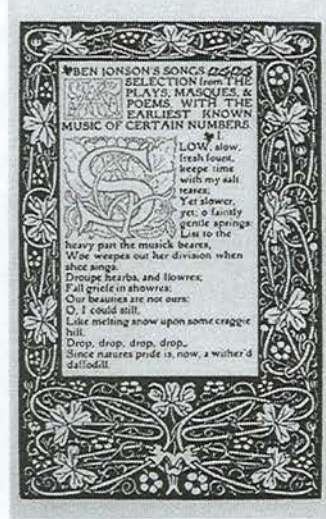 BEN JONSON'S SONGS
A SELECTION from THE
PLAYS, MASQUES, &
POEMS, WITH THE
EARLIEST KNOWN
MUSIC OF CERTAIN NUMBERS
I.
SLOW, slow,
fresh fount,
keepe time
with my salt
teares;
Yet slower,
yet; o faintly
gentle springs:
List to the
heavy part the musick beares,
Woe weepes out her division when
shee sings.
Droupe hearbs, and flowres;
Fall griefe in showres;
Our beauties are not ours:
O, I could still,
Like melting snow upon some craggie
hill,
Drop, drop, drop, drop,
Since natures pride is, now, a wither'd
daffodill.